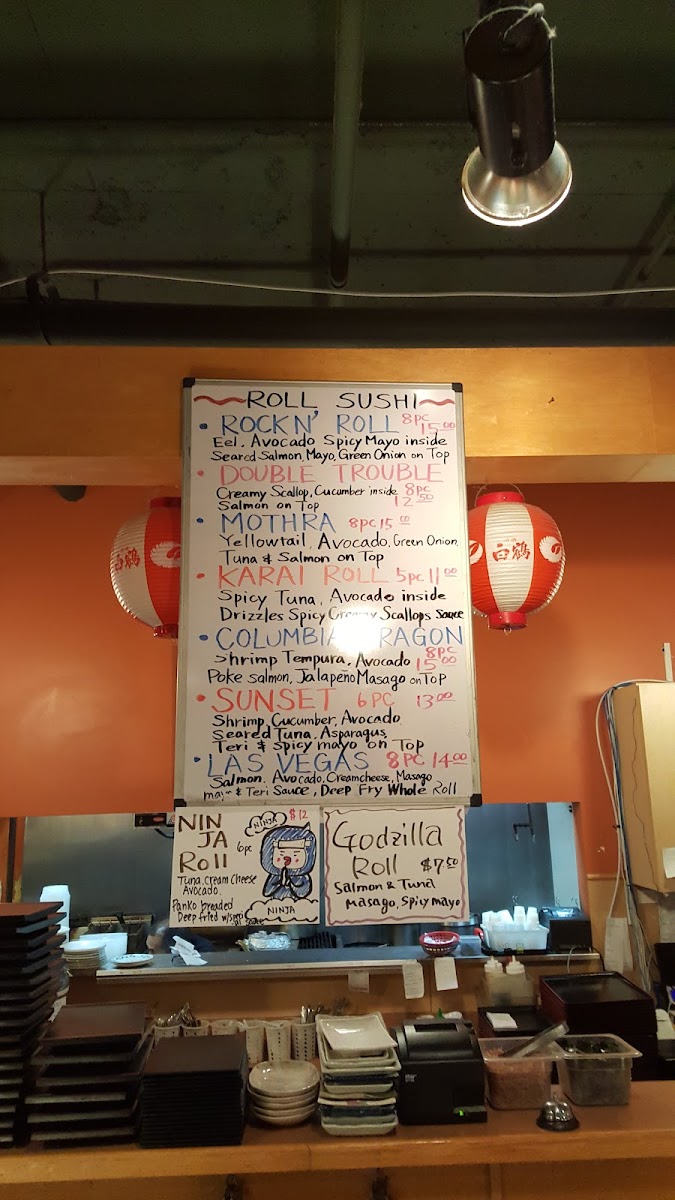 ROLL SUSHI
• ROCKN' ROLL 8PC 15.00
Eel. Avocado Spicy Mayo inside
Seared Salmon, Mayo, Green Onion on Top
• DOUBLE TROUBLE
Creamy Scallop, Cucumber inside 8pc
Salmon on Top 12.50
• MOTHRA 8pc 15.00
Yellowtail, Avocado, Green Onion,
Tuna & Salmon on Top
• KARAI ROLL 5pc 11.00
Spicy Tuna, Avocado inside
Drizzles Spicy Creamy Scallops Sauce
• COLUMBIA RAGON
Shrimp Tempura, Avocado 8PC 15.00
Poke Salmon, Jalapeño Masago on Top
• SUNSET 6 PC 13.00
Shrimp, Cucumber, Avocado
Seared Tuna, Asparagus,
Teri & Spicy mayo on Top
• LAS VEGAS 8 PC 14.00
Salmon. Avocado, Creamcheese, Masago
mayo & Teri Sauce, Deep Fry Whole Roll
NIN
JA
Roll
6pc
$12
NINJA
Tuna, cream cheese
Avocado.
Panko breaded
Deep fried w/
NINJA
Godzilla
Roll $7.50
Salmon & Tuna
Masago, Spicy mayo
白鶴